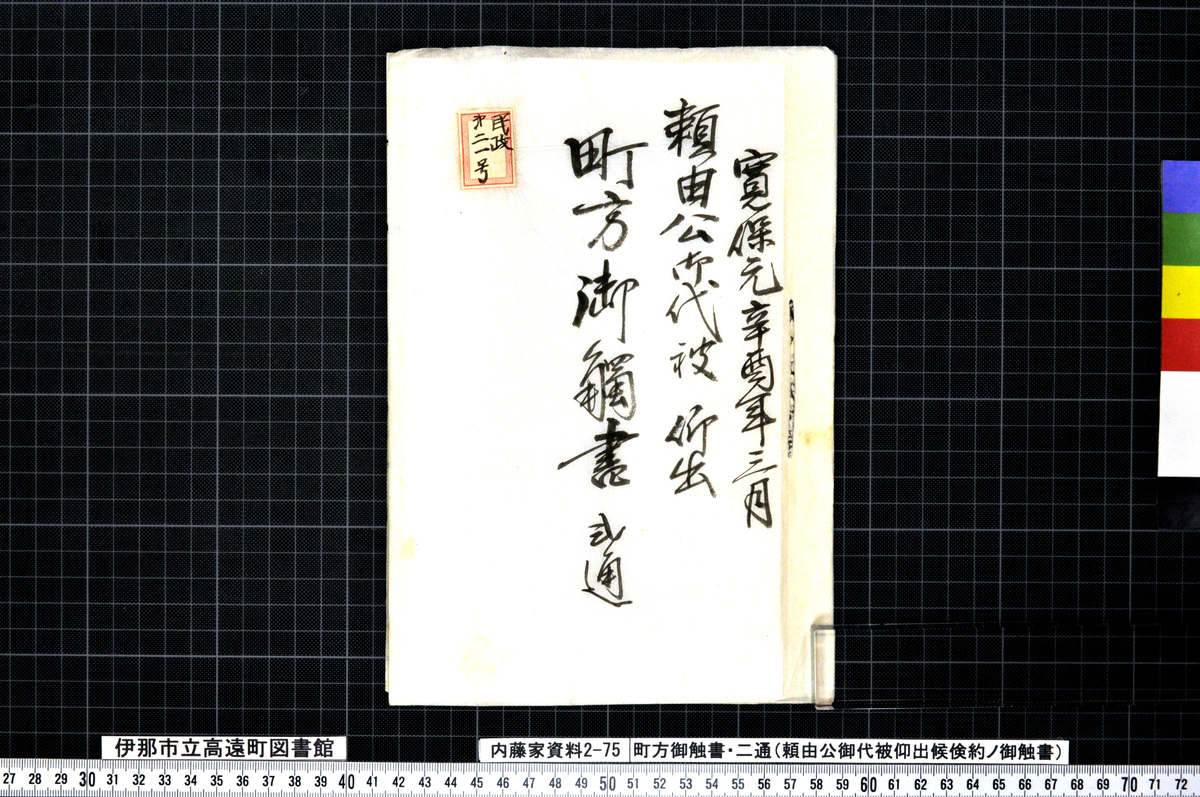 寛保元辛酉年三月
頼由公御代被 仰出
町方御觸書 弐通
民政
第二一号
伊那市立高遠町図書館
内藤家資料2-75 町方御触書・二通(頼由公御代被仰出候倹約ノ御触書)
27 28 29 30 31 32 33 34 35 36 37 38 39 40 41 42 43 44 45 46 47 48 49 50 51 52 53 54 55 56 57 58 59 60 61 62 63 64 65 66 67 68 69 70 71 72